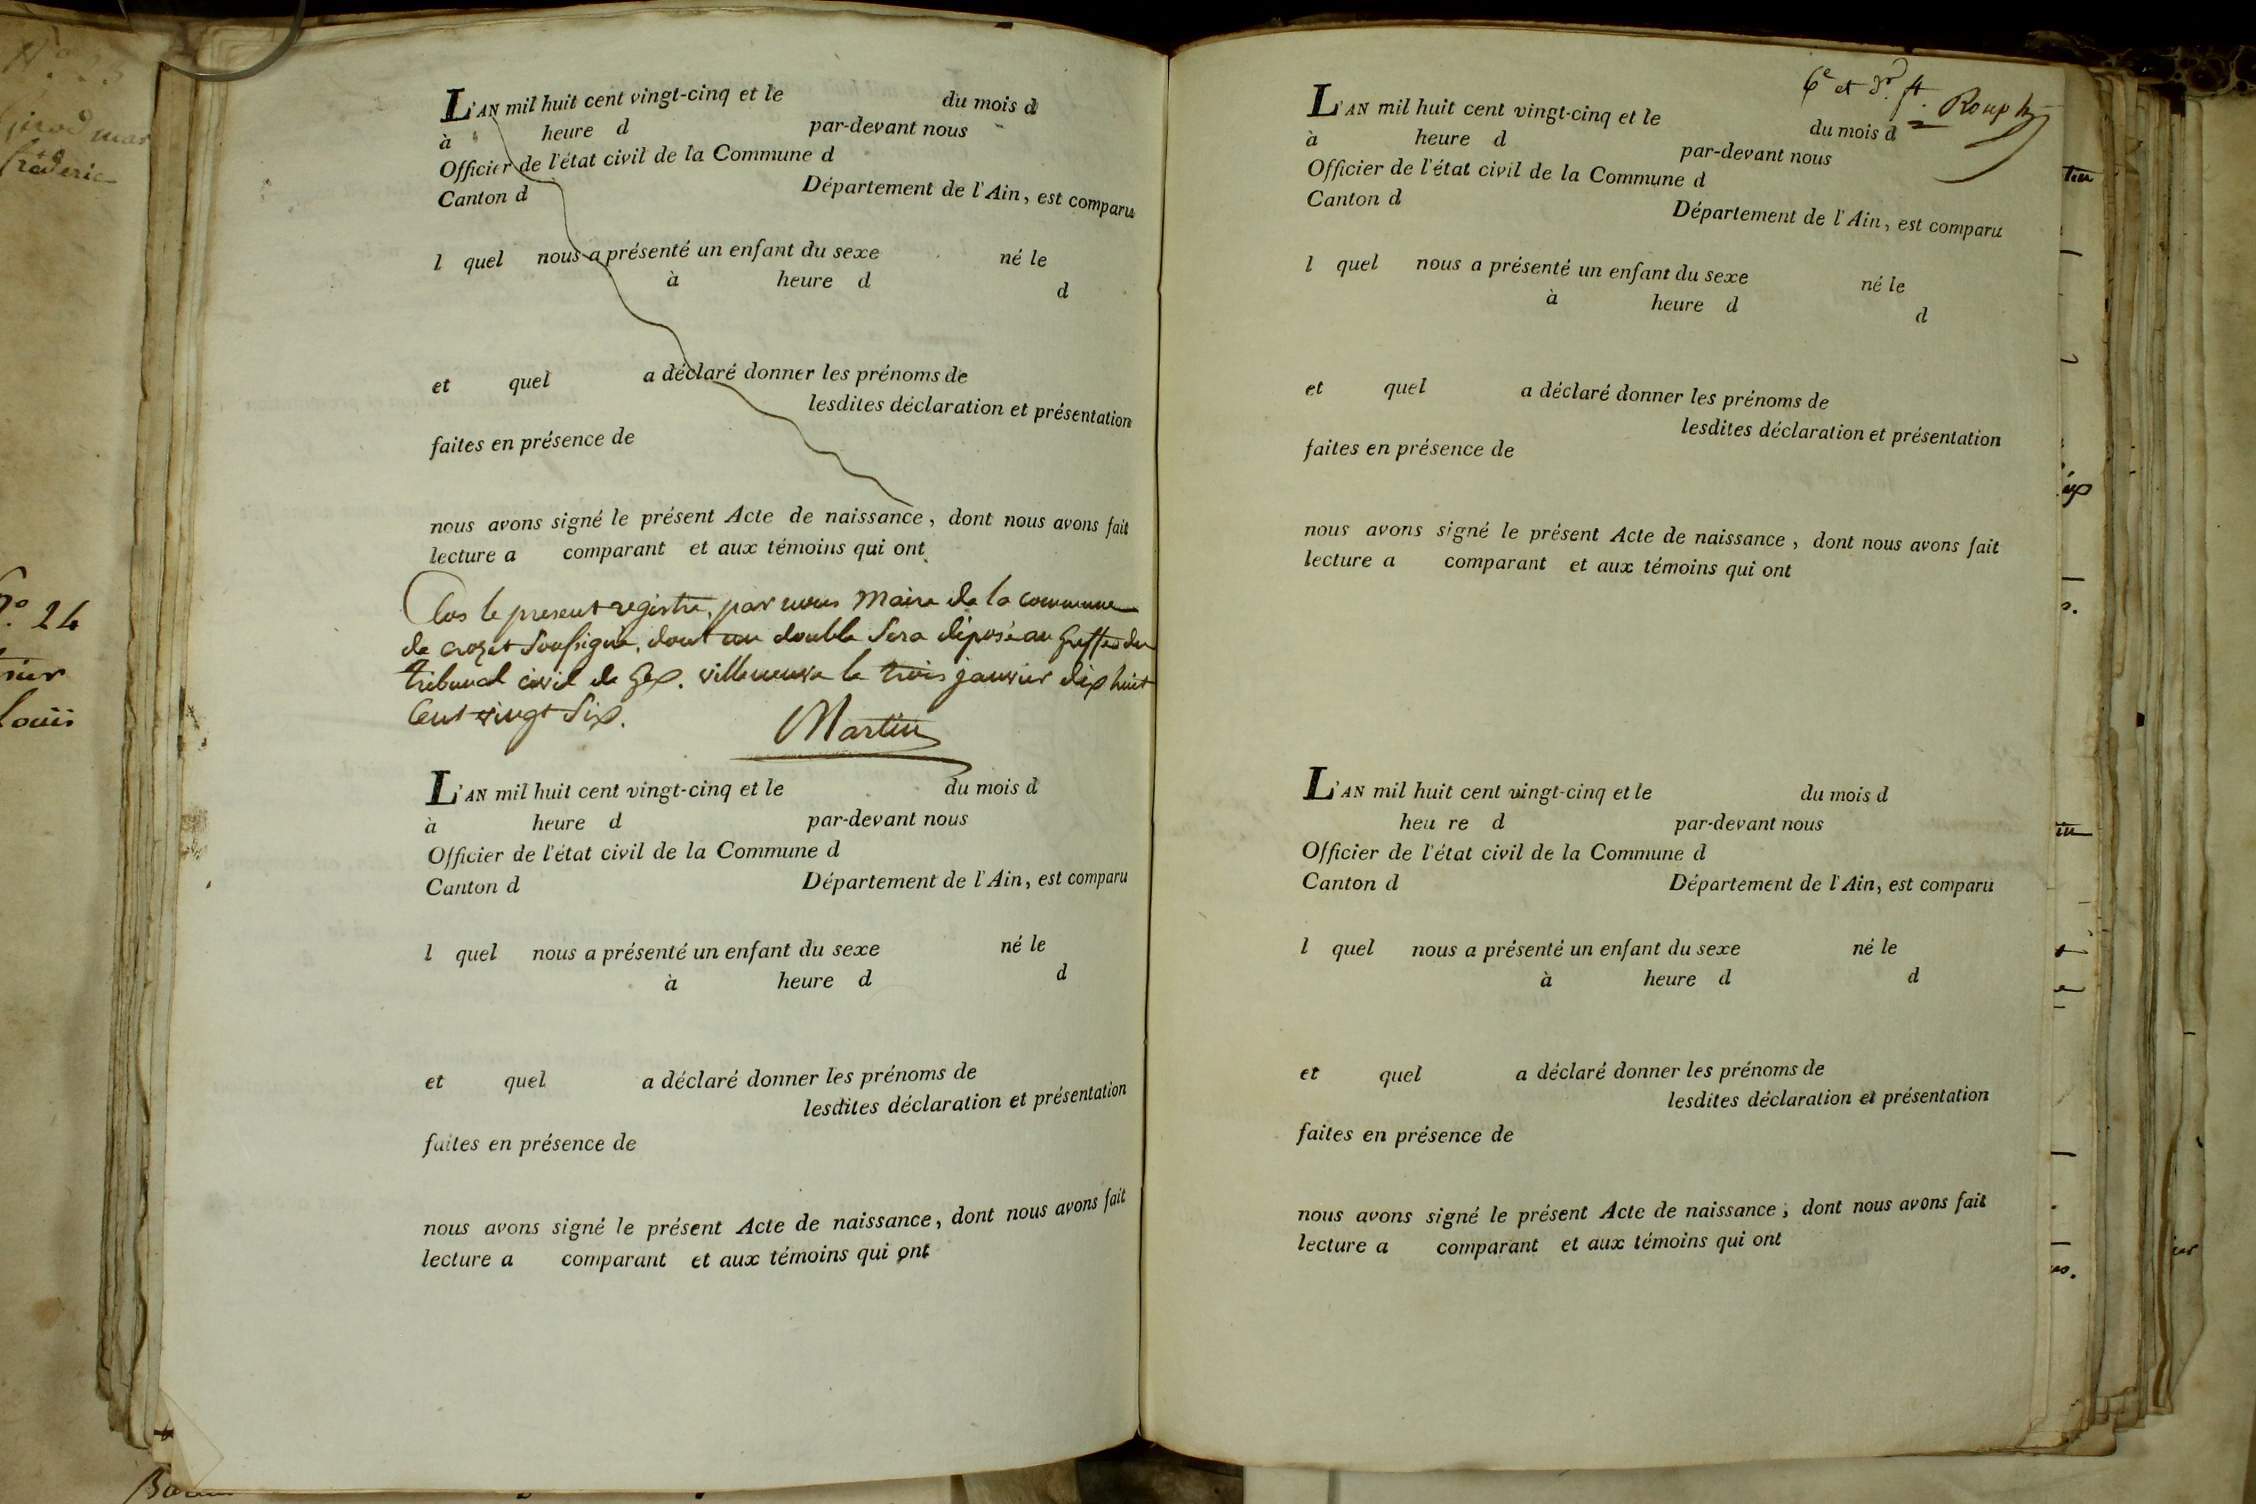 N.º 23
Girod mar
fréderic
N.º 24
Louis
L'AN mil huit cent vingt-cinq et le du mois d
à heure d par-devant nous
Officier de l'état civil de la Commune d
Canton d Département de l'Ain, est comparu
l quel nous a présenté un enfant du sexe né le
à heure d d
et quel a déclaré donner les prénoms de
lesdites déclaration et présentation
faites en présence de
nous avons signé le présent Acte de naissance, dont nous avons fait
lecture a comparant et aux témoins qui ont
Clos le present registre, par nous Maire de la commune
de crozet Soussigné, dont un double sera déposé au Greffe du
tribunal civil de Gex. villeneuve le trois janvier dix huit
Cent vingt Six.
Martin
L'AN mil huit cent vingt-cinq et le du mois d
à heure d par-devant nous
Officier de l'état civil de la Commune d
Canton d Département de l'Ain, est comparu
l quel nous a présenté un enfant du sexe né le
à heure d d
et quel a déclaré donner les prénoms de
lesdites déclaration et présentation
faites en présence de
nous avons signé le présent Acte de naissance, dont nous avons fait
lecture a comparant et aux témoins qui ont
6e et dr. ft.
L'AN mil huit cent vingt-cinq et le du mois d
à heure d par-devant nous
Officier de l'état civil de la Commune d
Canton d Département de l'Ain, est comparu
l quel nous a présenté un enfant du sexe né le
à heure d d
et quel a déclaré donner les prénoms de
lesdites déclaration et présentation
faites en présence de
nous avons signé le présent Acte de naissance, dont nous avons fait
lecture a comparant et aux témoins qui ont
L'AN mil huit cent vingt-cinq et le du mois d
heu re d par-devant nous
Officier de l'état civil de la Commune d
Canton d Département de l'Ain, est comparu
l quel nous a présenté un enfant du sexe né le
à heure d d
et quel a déclaré donner les prénoms de
lesdites déclaration et présentation
faites en présence de
nous avons signé le présent Acte de naissance, dont nous avons fait
lecture a comparant et aux témoins qui ont